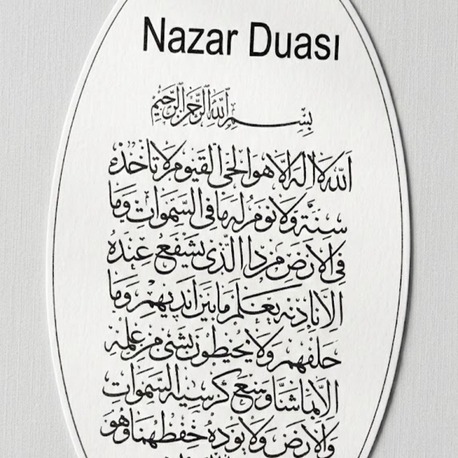 Nazar Duası
بِسْمِ اللّٰهِ الرَّحْمٰنِ الرَّحِيمِ
اللّٰه لا اله الا هو الحي القيوم لا تأخذه
سنة ولا نوم له ما في السموات وما
في الارض من ذا الّذي يشفع عنده
الا باذنه يعلم ما بين ايديهم وما
خلفهم ولا يحيطون بشئ من علمه
الا بما شا وسع كرسيه السموات
والارض ولا يوده حفظهما وهو